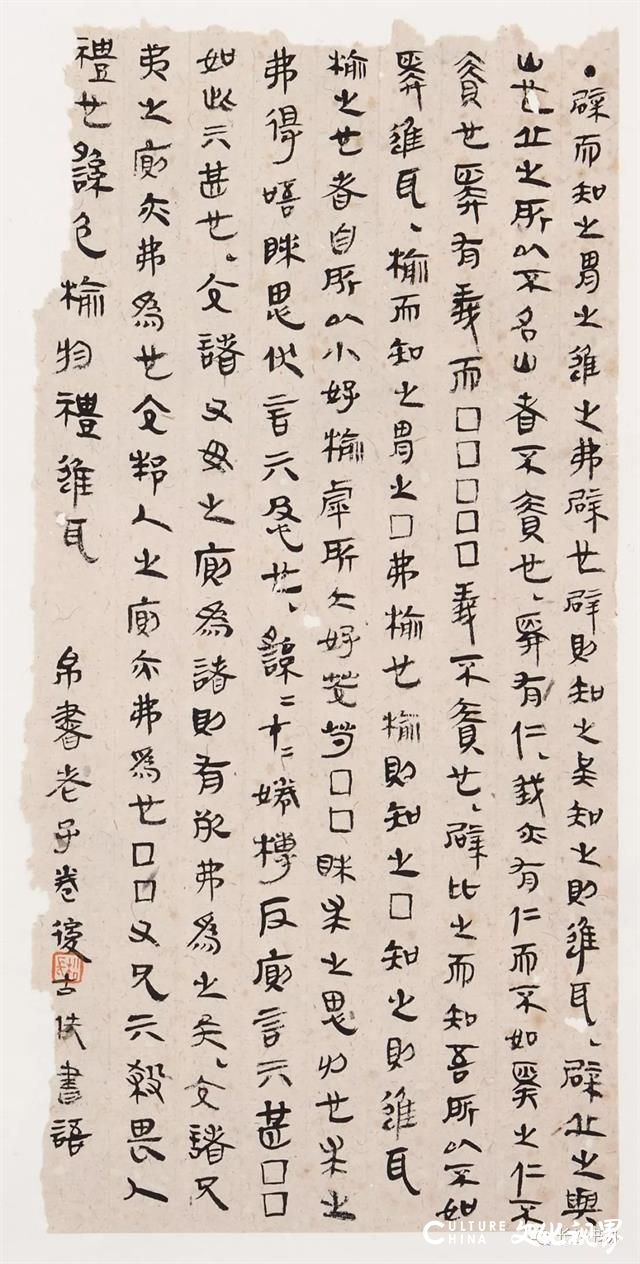 ・辟而知之胃之進之弗辟也辟則知之矣知之則進耳、辟丘之與
山也丘之所以不名山者不責也、舜有仁、我亦有仁而不如舜之仁不
責也舜有義而□□□□□義不責也、辟比之而知吾所以不如
舜進耳、榆而知之胃之□弗榆也榆則知之□知之則進耳
榆之也者自所以小好榆虖所大好茭芍□□眯求之思切也求之
弗得唔眯思伏言亓急也、繇=才=婘槫反廁言亓甚□□
如此亓甚也、交諸父母之廁為諸則有死弗為之矣、交諸兄
弟之廁亦弗為也交邦人之廁亦弗為也□□父兄亓殺畏人
禮也繇色榆物禮進耳
帛書老子卷後古佚書語
CULTURE CHINA 文化視界